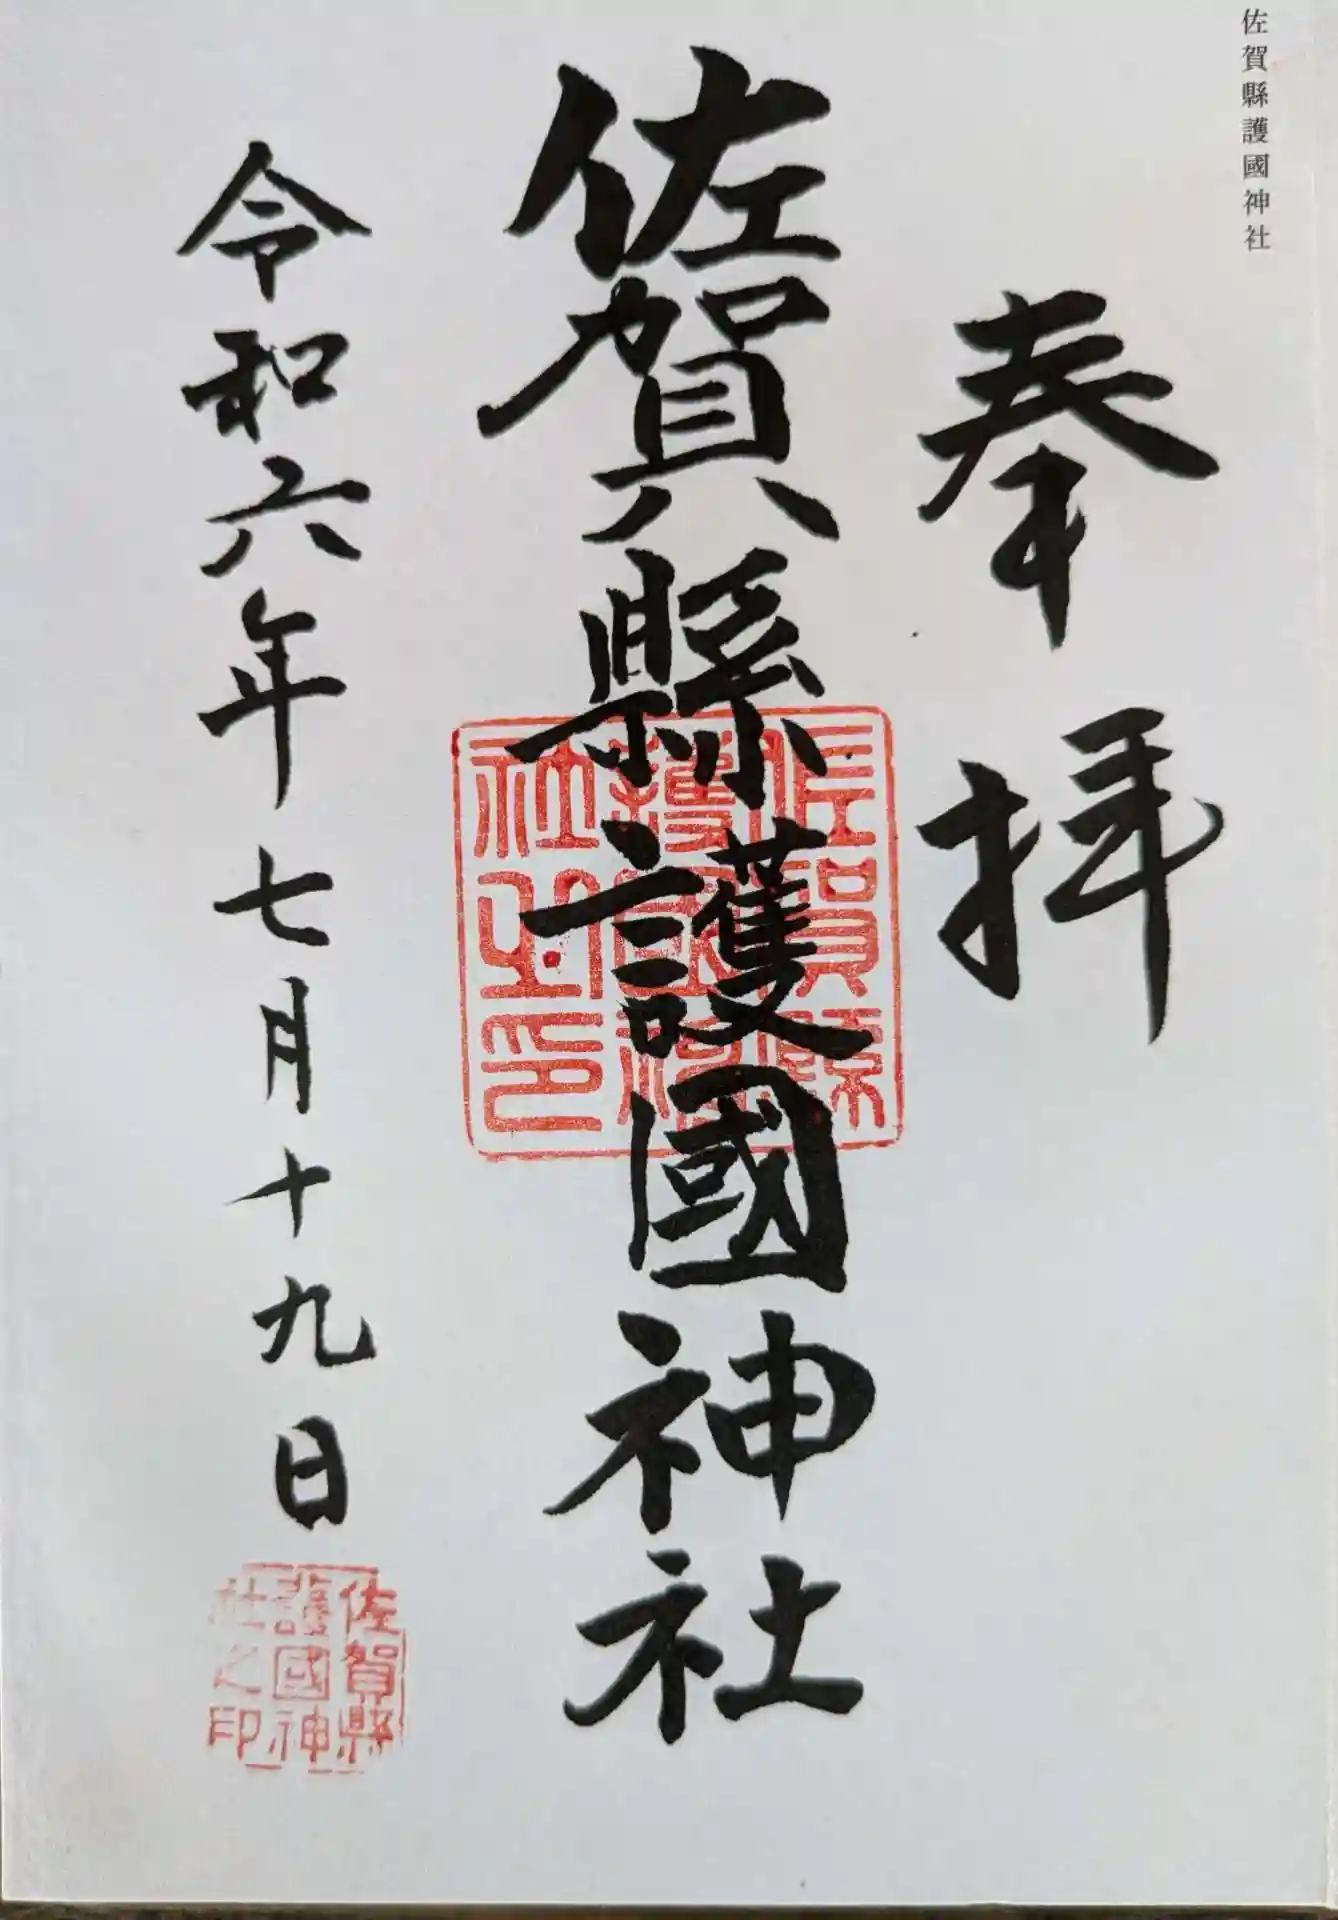 佐賀縣護國神社
奉拝
佐賀縣護國神社
佐賀縣
護國神
社之印
令和六年七月十九日
佐賀縣
護國神
社之印